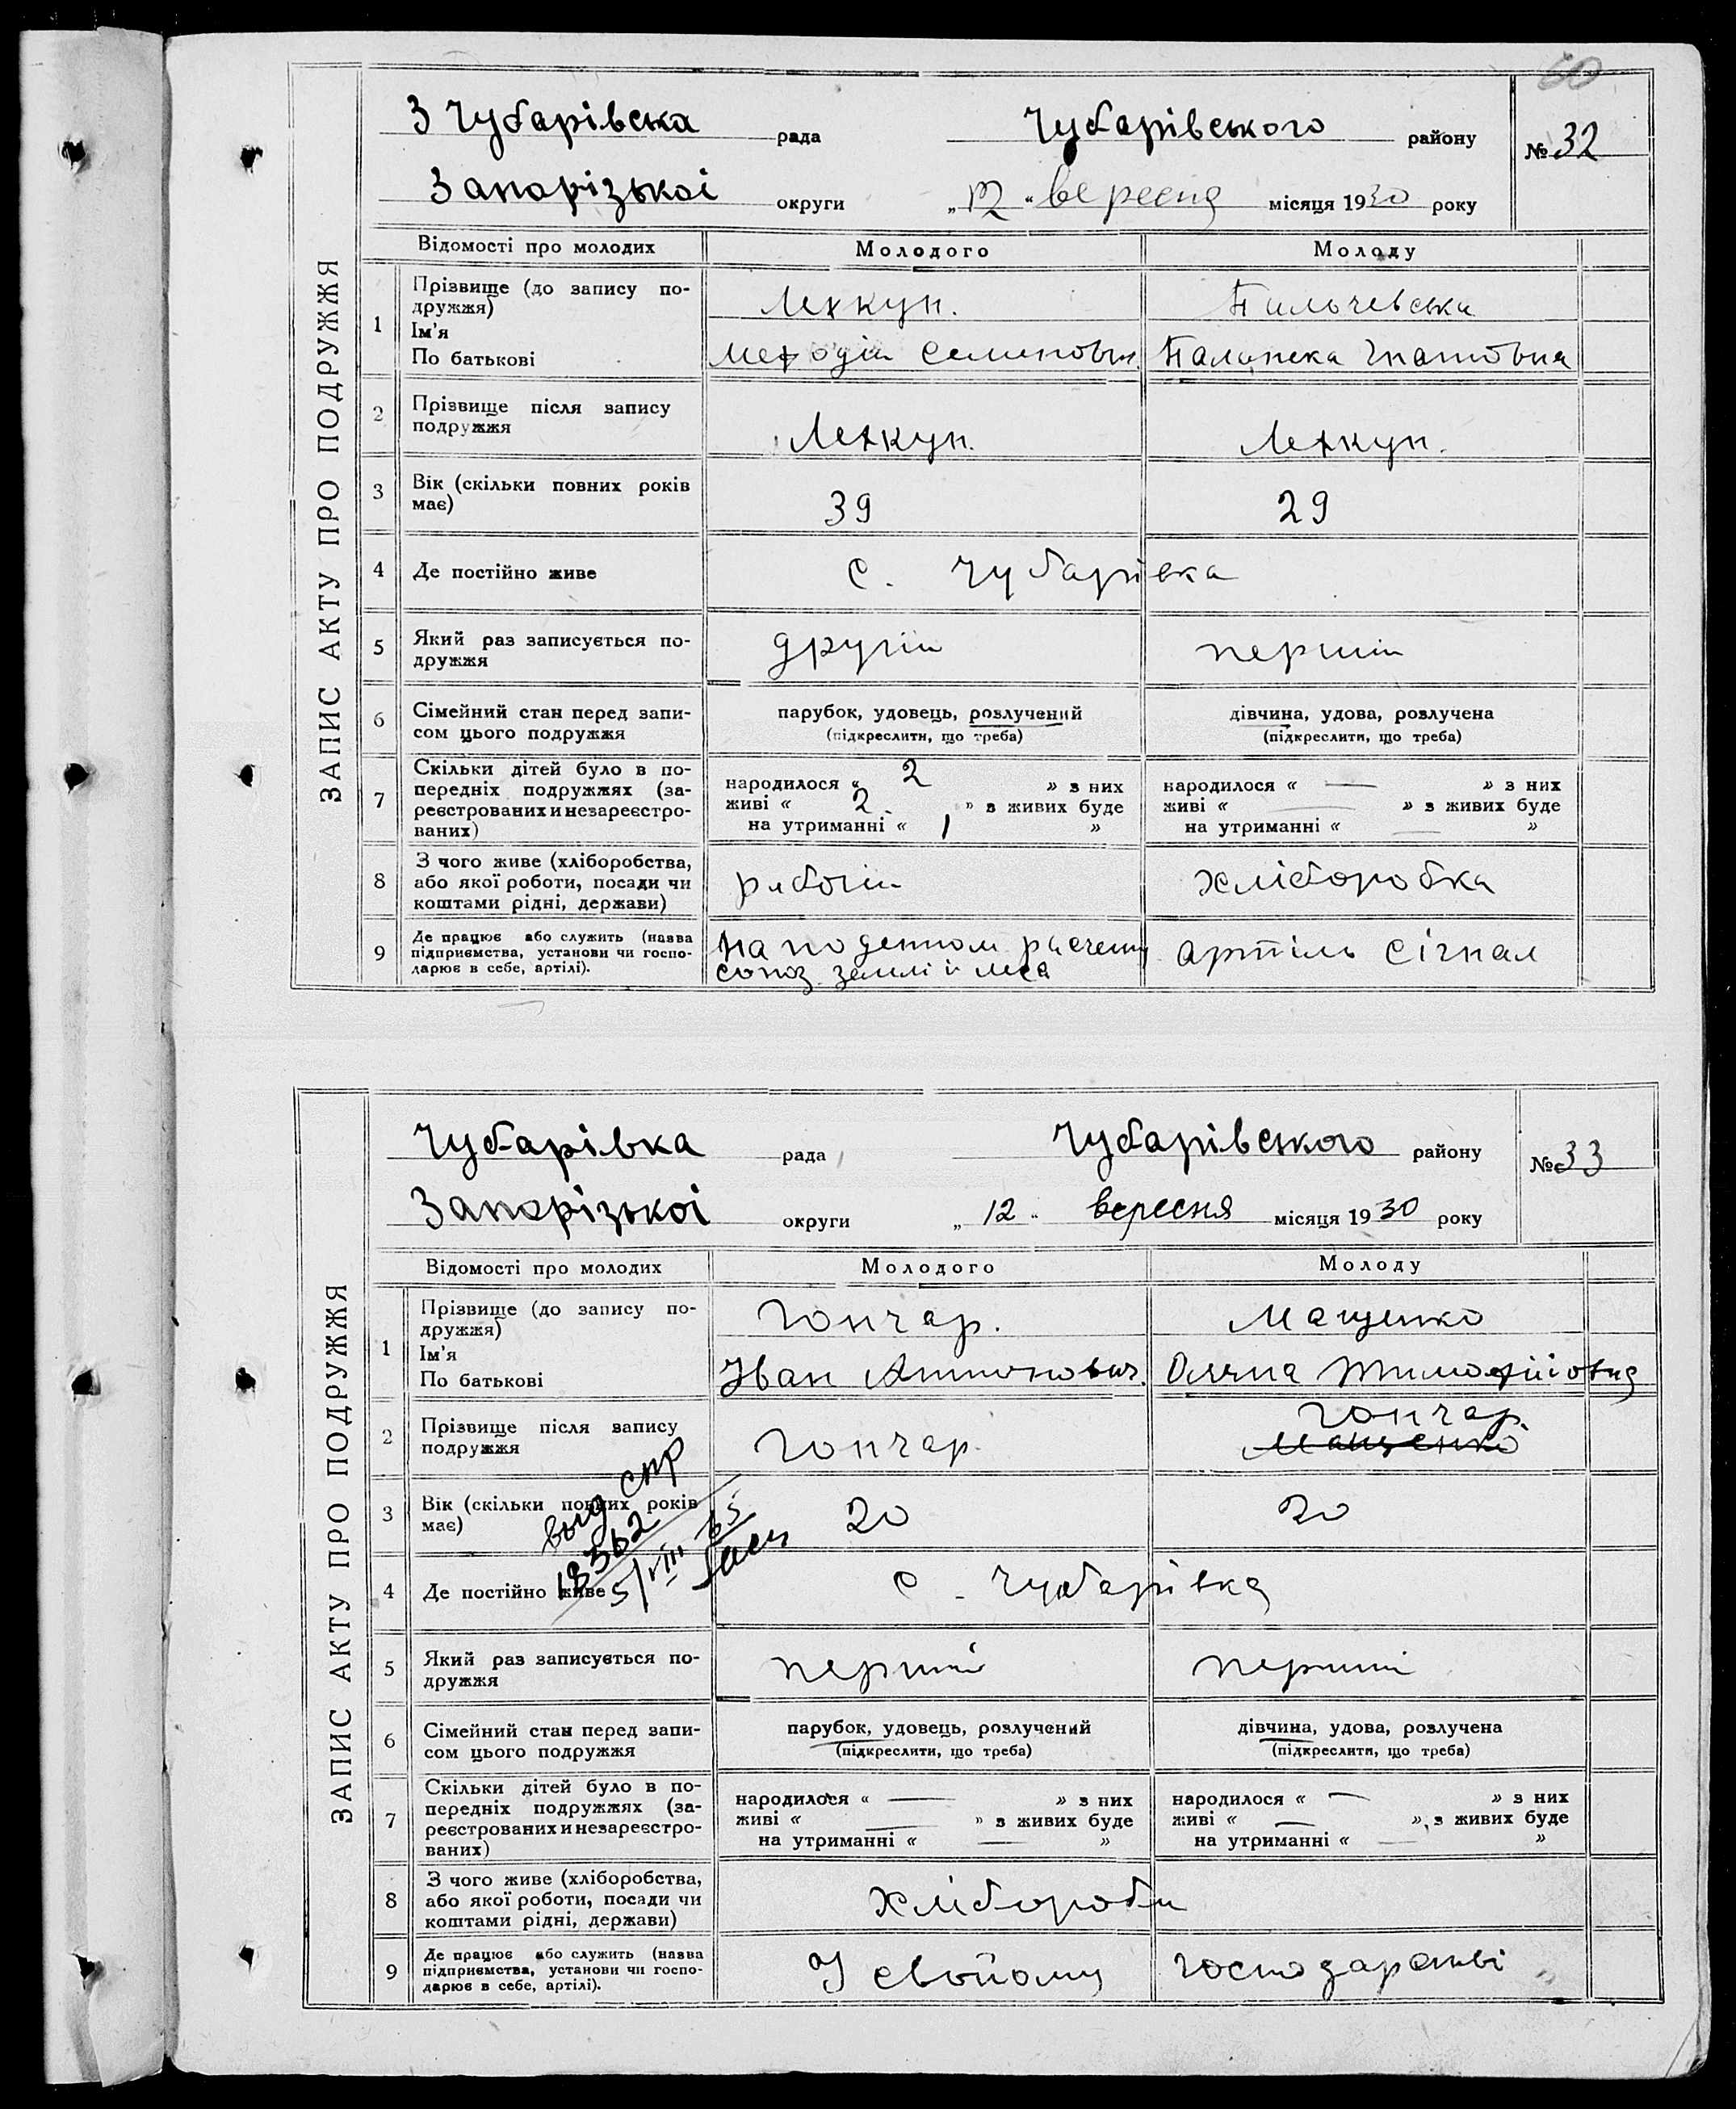 60
ЗАПИС АКТУ ПРО ПОДРУЖЖЯ
З Чубарівска рада Чубарівського району №32
Запорізькоі округи „12“ вересня місяця 1930 року
Відомості про молодих Молодого Молоду
1 Прізвище (до запису по-
дружжя)
Ім'я
По батькові
Лехкун. Пильчевська
Мефодій Семенович Палажка Гнатовна
2 Прізвище після запису
подружжя
Лехкун. Лехкун.
3 Вік (скільки повних років
має)
39 29
4 Де постійно живе с. Чубарівка
5 Який раз записується по-
дружжя
другій першій
6 Сімейний стан перед запи-
сом цього подружжя
парубок, удовець, розлучений дівчина, удова, розлучена
(підкреслити, що треба) (підкреслити, що треба)
7 Скільки дітей було в по-
передніх подружжях (за-
реєстрованих и незареєстро-
ваних)
народилося « 2 » з них народилося « — » з них
живі « 2 » з живих буде живі « — » з живих буде
на утриманні « 1 » на утриманні « — »
8 З чого живе (хліборобства,
або якої роботи, посади чи
коштами рідні, держави)
рабочій хліборобка
9 Де працює або служить (назва
підприємства, установи чи госпо-
дарює в себе, артілі).
На поденном расчету артіль Сігнал
союз землі й леса
ЗАПИС АКТУ ПРО ПОДРУЖЖЯ
Чубарівка рада Чубарівського району №33
Запорізькоі округи „12“ вересня місяця 1930 року
Відомості про молодих Молодого Молоду
1 Прізвище (до запису по-
дружжя)
Ім'я
По батькові
Гончар. Мащенко
Іван Антонович. Оляна Тимофійовна
2 Прізвище після запису
подружжя
Гончар. Гончар.
Мащенко
3 Вік (скільки повних років
має)
20 20
выд спр
18362
5/VIII 65
4 Де постійно живе с. Чубарівка
5 Який раз записується по-
дружжя
першій першій
6 Сімейний стан перед запи-
сом цього подружжя
парубок, удовець, розлучений дівчина, удова, розлучена
(підкреслити, що треба) (підкреслити, що треба)
7 Скільки дітей було в по-
передніх подружжях (за-
реєстрованих и незареєстро-
ваних)
народилося « — » з них народилося « — » з них
живі « — » з живих буде живі « — » з живих буде
на утриманні « — » на утриманні « — »
8 З чого живе (хліборобства,
або якої роботи, посади чи
коштами рідні, держави)
хлібороби
9 Де працює або служить (назва
підприємства, установи чи госпо-
дарює в себе, артілі).
У свойому господарстві